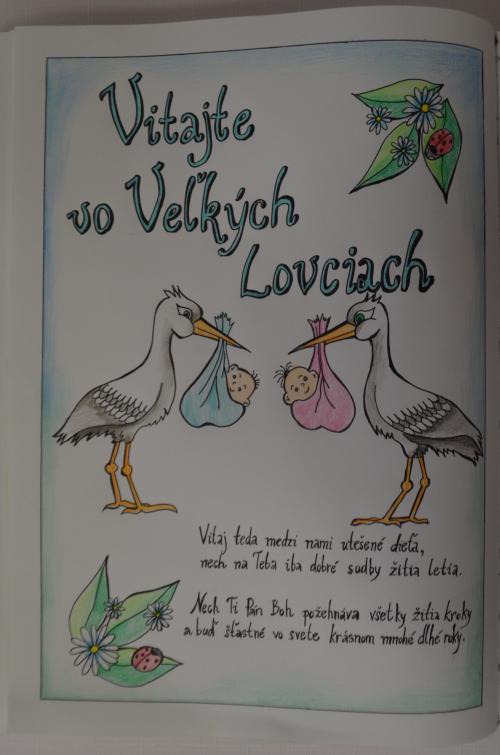 Vitajte
vo Veľkých
Lovciach
Vitaj teda medzi nami utešené dieťa,
nech na Teba iba dobré sudby žitia letia.
Nech Ti Pán Boh požehnáva všetky žitia kroky
a buď šťastné vo svete krásnom mnohé dlhé roky.